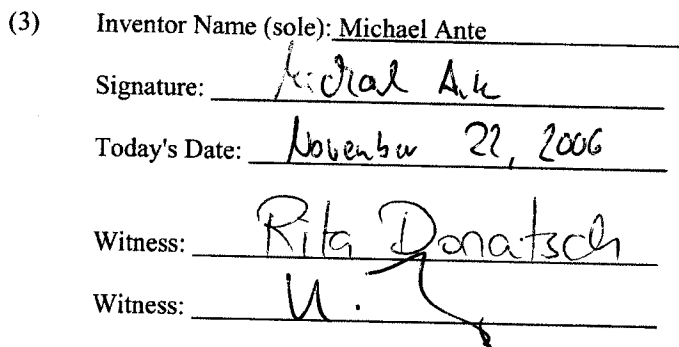 (3) Inventor Name (sole): Michael Ante
Signature: Michael Ante
Today's Date: November 22, 2006
Witness: Rita Donatsch
Witness: